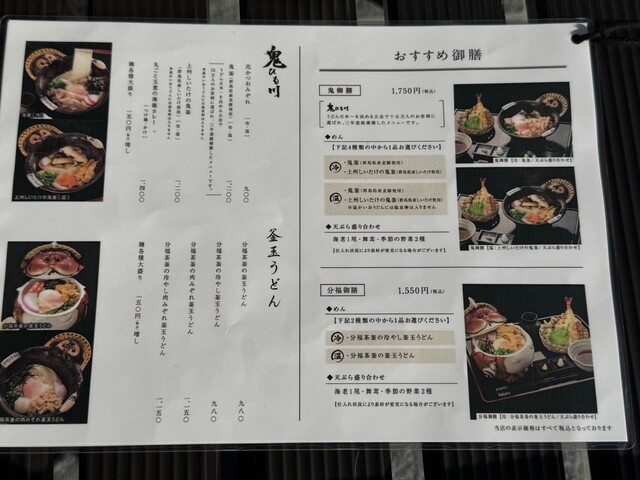 鬼ひも川
花かつおみぞれ(冷・温) 九〇〇
鬼釜(群馬県産麦豚使用)(冷・温) 一、二〇〇
上州しいたけの鬼釜
一、二〇〇
丸ごと玉葱の南蛮カレー
(つけ麺・かけ)
一、四〇〇
麺各種大盛り 一五〇円増し
上州しいたけの鬼釜【温】
釜玉うどん
分福茶釜の釜玉うどん 九八〇
分福茶釜の冷やし釜玉うどん 九八〇
分福茶釜の肉みぞれ釜玉うどん 一、一五〇
分福茶釜の冷やし肉みぞれ釜玉うどん 一、一五〇
麺各種大盛り 一五〇円増し
分福茶釜の釜玉うどん
分福茶釜の肉みぞれ釜玉うどん
おすすめ御膳
鬼御膳 1,750円(税込)
鬼ひも川
うどん日本一を決める大会で十五万人のお客様に
選ばれ、三年連続優勝したメニューです。
◆めん
【下記4種類の中から1品お選びください】
冷
・鬼釜(群馬県産麦豚使用)
・上州しいたけの鬼釜(群馬県産しいたけ使用)
温
・鬼釜(群馬県産麦豚使用)
・上州しいたけの鬼釜(群馬県産しいたけ使用)
※温かいおうどんには温泉卵は入りません
◆天ぷら盛り合わせ
海老1尾・舞茸・季節の野菜2種
【仕入れ状況により素材が変更になる場合がございます】
鬼御膳【冷:鬼釜/天ぷら盛り合わせ】
鬼御膳【温:上州しいたけの鬼釜/天ぷら盛り合わせ】
分福御膳 1,550円(税込)
◆めん
【下記2種類の中から1品お選びください】
冷 ・分福茶釜の冷やし釜玉うどん
温 ・分福茶釜の釜玉うどん
◆天ぷら盛り合わせ
海老1尾・舞茸・季節の野菜2種
【仕入れ状況により素材が変更になる場合がございます】
分福御膳【冷:分福茶釜の釜玉うどん/天ぷら盛り合わせ】
当店の表示価格はすべて税込となっております